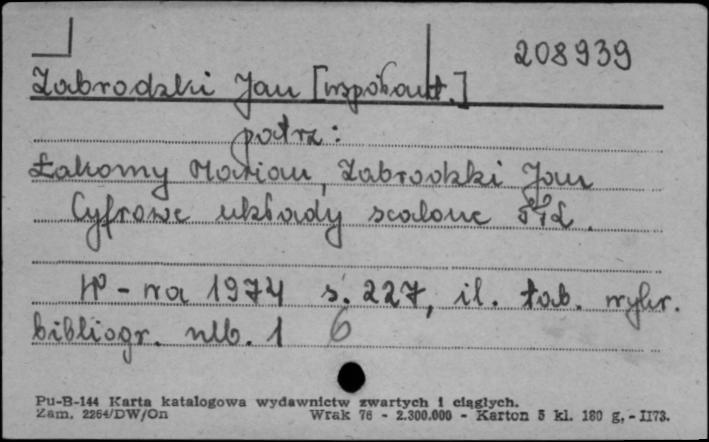 208939
Zabrodzki Jan [współaut.]
patrz:
Łakomy Marian, Zabrodzki Jan
Cyfrowe układy scalone TTL.
W-wa 1974 s. 227, il. tab. wykr.
bibliogr. nlb. 1 6
Pu-B-144 Karta katalogowa wydawnictw zwartych i ciągłych.
Zam. 2264/DW/On Wrak 76 - 2.300.000 - Karton 5 kl. 180 g. - II73.